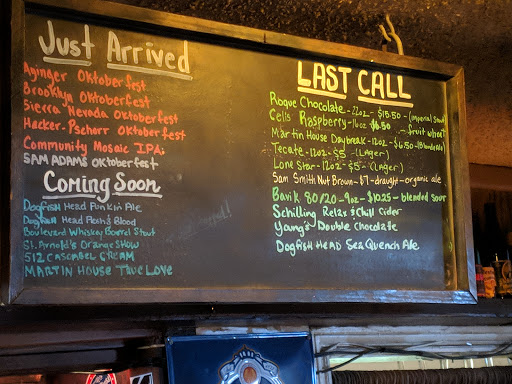 Just Arrived
Ayinger Oktoberfest
Brooklyn Oktoberfest
Sierra Nevada Oktoberfest
Hacker-Pschorr Oktoberfest
Community Mosaic IPA
SAM ADAMS Oktoberfest
Coming Soon
Dogfish Head Punkin Ale
Dogfish Head Flesh & Blood
Boulevard Whiskey Barrel Stout
St. Arnold's Orange Show
512 CASCABEL CREAM
MARTIN HOUSE TRUE LOVE
LAST CALL
Rogue Chocolate - 22oz - $15.50 - (imperial stout)
Celis Raspberry - 16oz $6.50 - fruit wheat
Martin House Daybreak - 12oz - $6.50 - (Blonde ale)
Tecate - 12oz - $5 - (Lager)
Lone Star - 12oz - $5 - (Lager)
Sam Smith Nut Brown - $7 - draught - organic ale
Bavik 80/20 - 9oz - $10.25 - blended sour
Schilling Relax & Chill Cider
Youngs Double Chocolate
Dogfish Head SeaQuench Ale